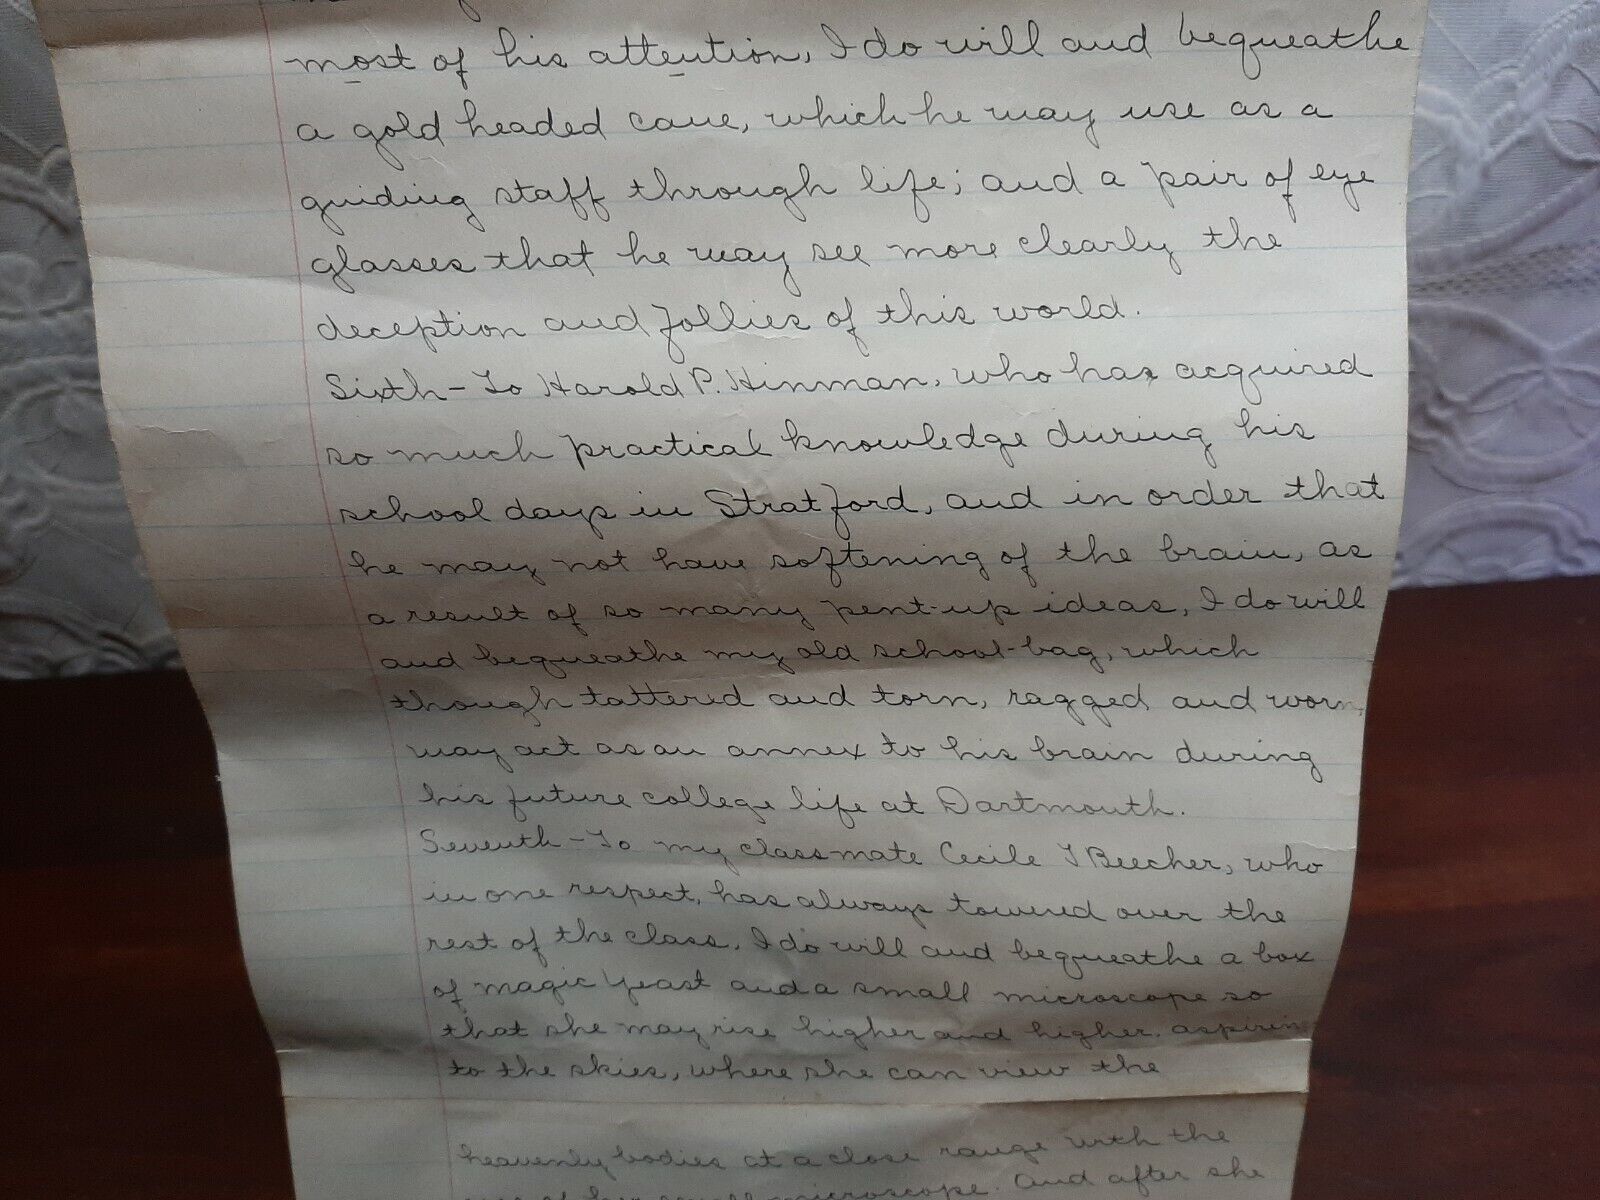 most of his attention, I do will and bequeathe
a gold headed cane, which he may use as a
guiding staff through life; and a pair of eye
glasses that he may see more clearly the
deception and follies of this world.
Sixth - To Harold P. Hinman, who has acquired
so much practical knowledge during his
school days in Stratford, and in order that
he may not have softening of the brain, as
a result of so many pent-up ideas, I do will
and bequeathe my old school-bag, which
though tattered and torn, ragged and worn,
may act as an annex to his brain during
his future college life at Dartmouth.
Seventh - To my classmate Cecile I Beecher, who
in one respect, has always towered over the
rest of the class, I do will and bequeathe a box
of magic yeast and a small microscope so
that she may rise higher and higher, aspirin
to the skies, where she can view the
heavenly bodies at a close range with the
of her small microscope. And after she